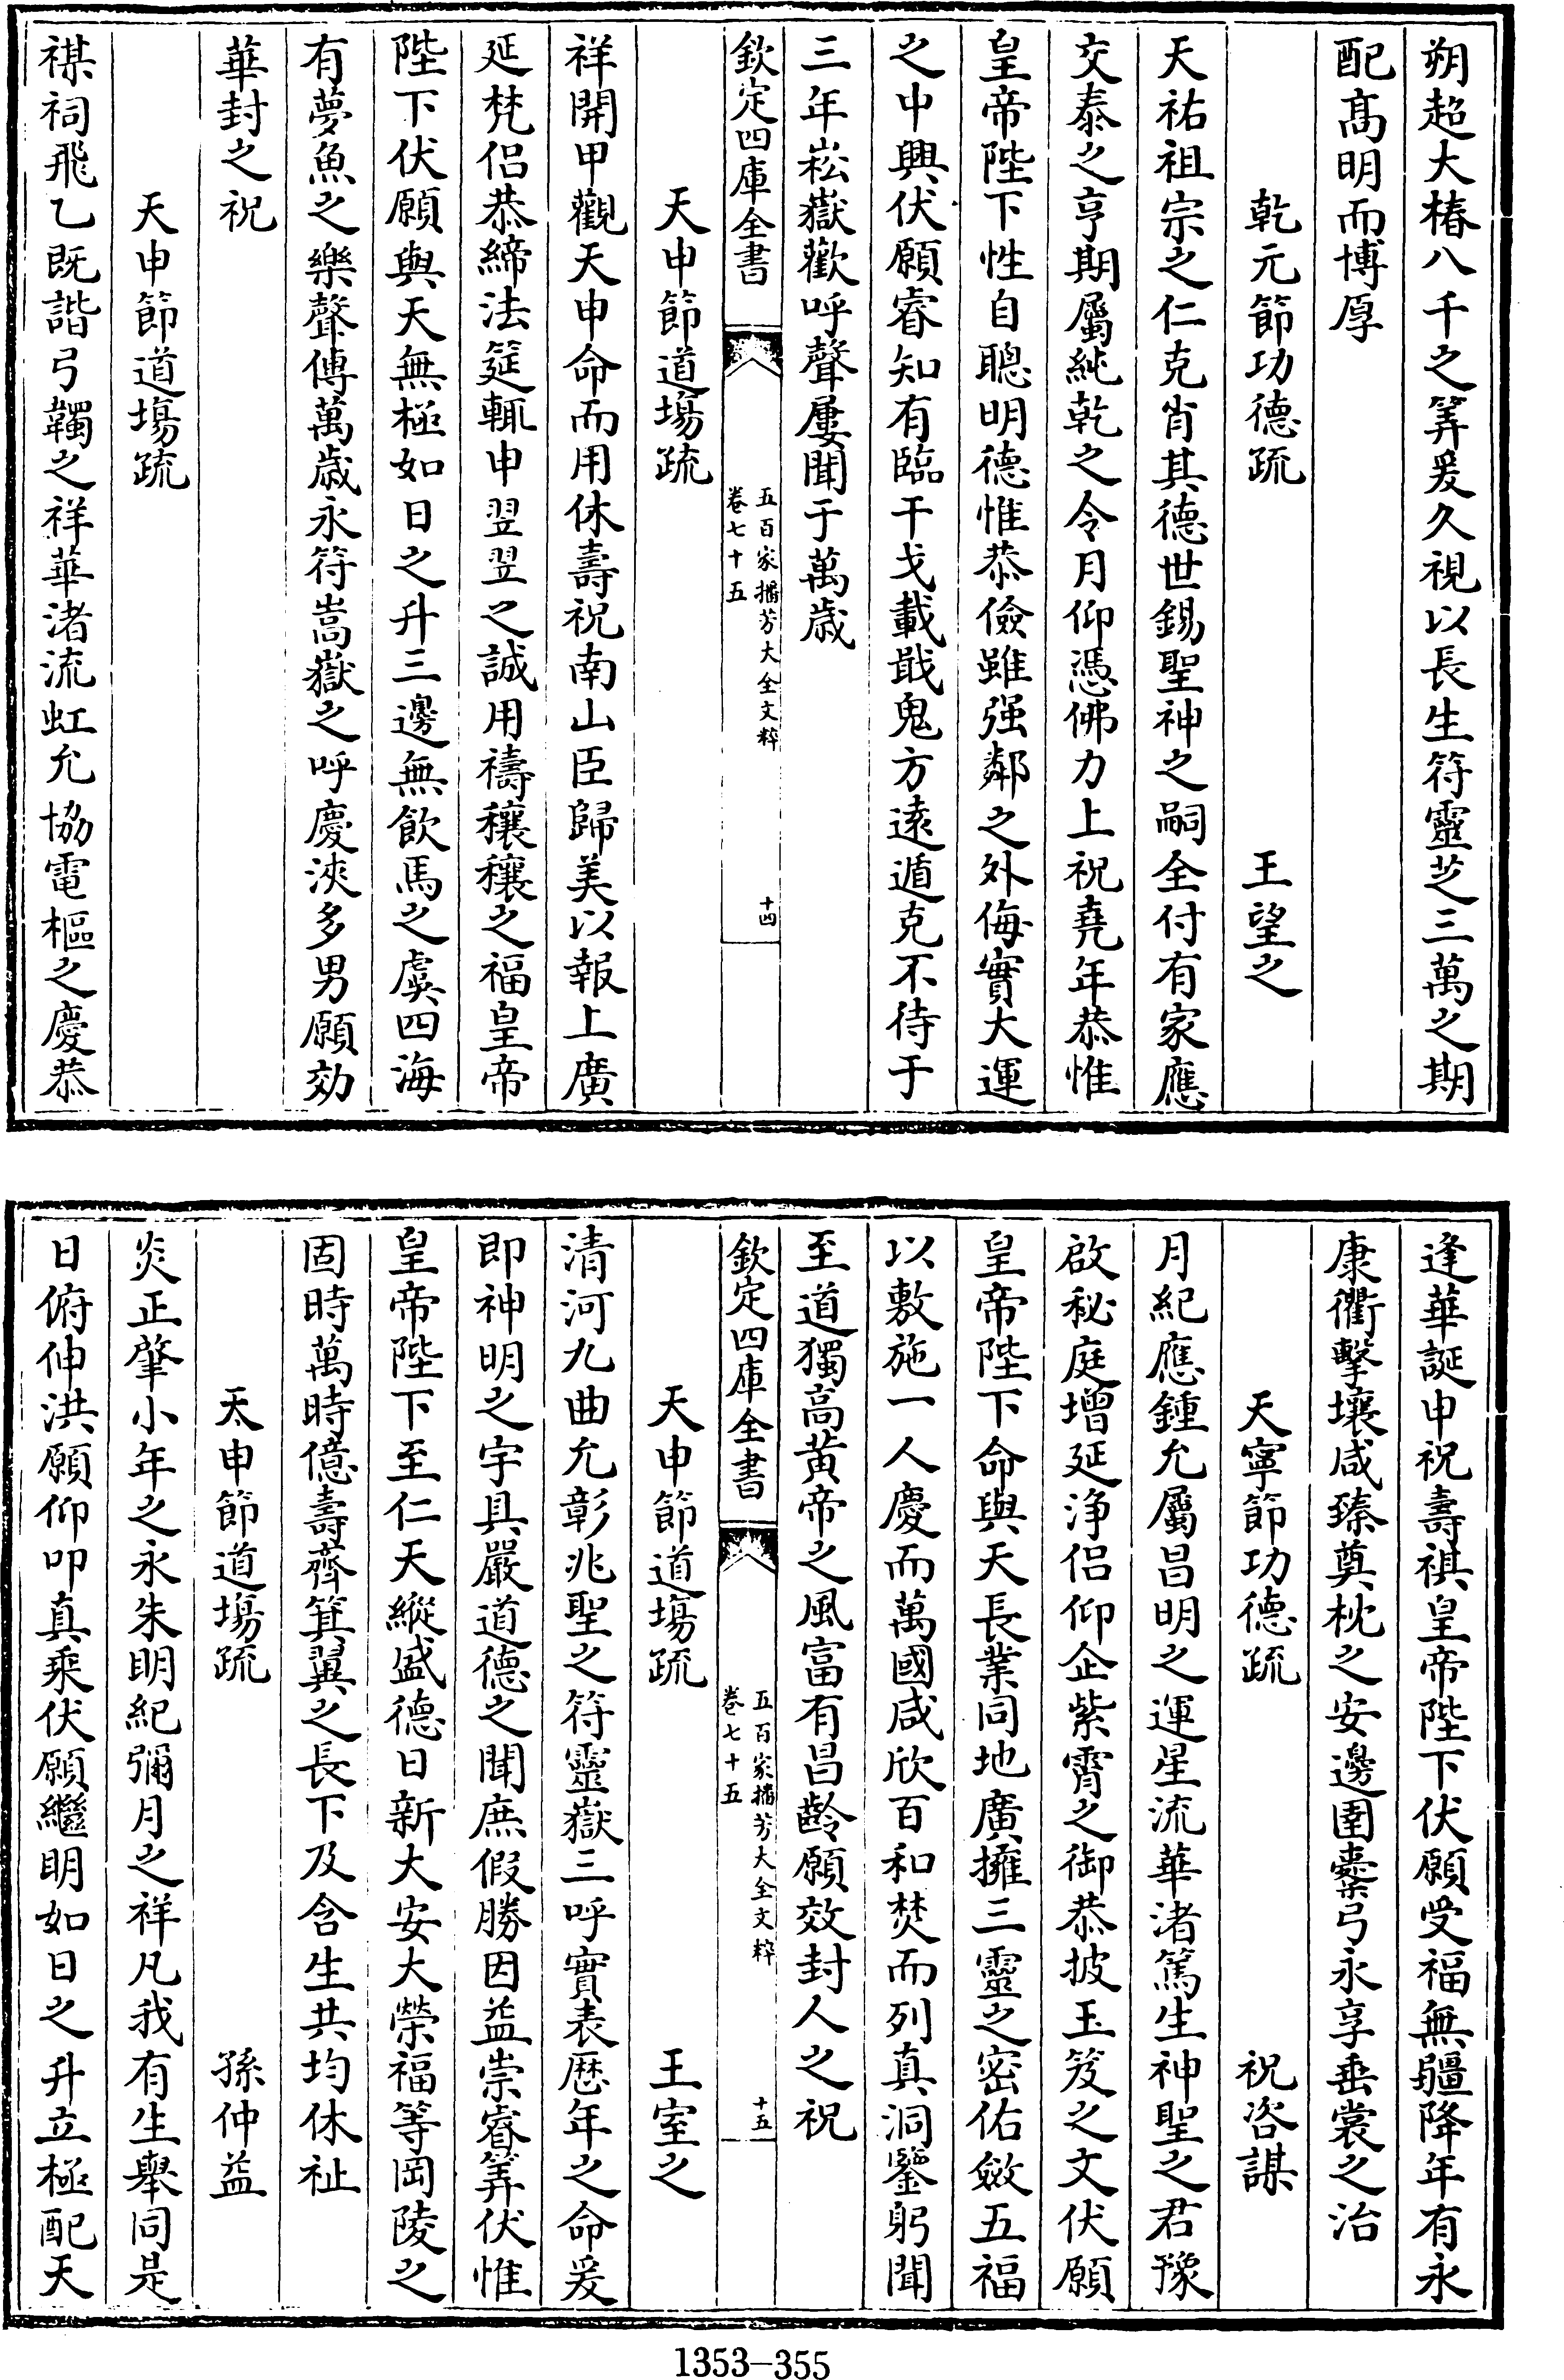 朔超大椿八千之筭爰久視以長生符靈芝三萬之期
配髙明而博厚
乾元節功德疏 王望之
天祐祖宗之仁克肖其德世錫聖神之嗣全付有家應
交泰之亨期屬純乾之令月仰憑佛力上祝堯年恭惟
皇帝陛下性自聰明德惟恭儉雖强鄰之外侮實大運
之中興伏願睿知有臨干戈載戢鬼方逺遁克不待于
三年崧嶽歡呼聲屢聞于萬歳
欽定四庫全書 五百家播芳大全文粹 卷七十五 十四
天申節道塲疏
祥開甲觀天申命而用休壽祝南山臣歸美以報上廣
延梵侣恭締法筵輒申翌翌之誠用禱穰穰之福皇帝
陛下伏願與天無極如日之升三邊無飲馬之虞四海
有夢魚之樂聲傳萬歳永符嵩嶽之呼慶浹多男願効
華封之祝
天申節道塲疏
禖祠飛乙既諧弓韣之祥華渚流虹允協電樞之慶恭
逢華誕申祝壽祺皇帝陛下伏願受福無疆降年有永
康衢擊壤咸臻奠枕之安邊圉櫜弓永享垂裳之治
天寧節功德疏 祝咨謀
月紀應鍾允屬昌明之運星流華渚篤生神聖之君豫
啟秘庭增延浄侣仰企紫霄之御恭披玉笈之文伏願
皇帝陛下命與天長業同地廣擁三靈之密佑斂五福
以敷施一人慶而萬國咸欣百和焚而列真洞鑒躬聞
至道獨高黄帝之風富有昌齡願效封人之祝
欽定四庫全書 五百家播芳大全文粹 卷七十五 十五
天申節道塲疏 王室之
清河九曲允彰兆聖之符靈嶽三呼實表厯年之命爰
即神明之宇具嚴道德之聞庶假勝因益崇睿筭伏惟
皇帝陛下至仁天縱盛德日新大安大榮福等岡陵之
固時萬時億壽齊箕翼之長下及含生共均休祉
天申節道塲疏 孫仲益
炎正肇小年之永朱明紀彌月之祥凡我有生舉同是
日俯伸洪願仰叩真乘伏願繼明如日之升立極配天
1353-355